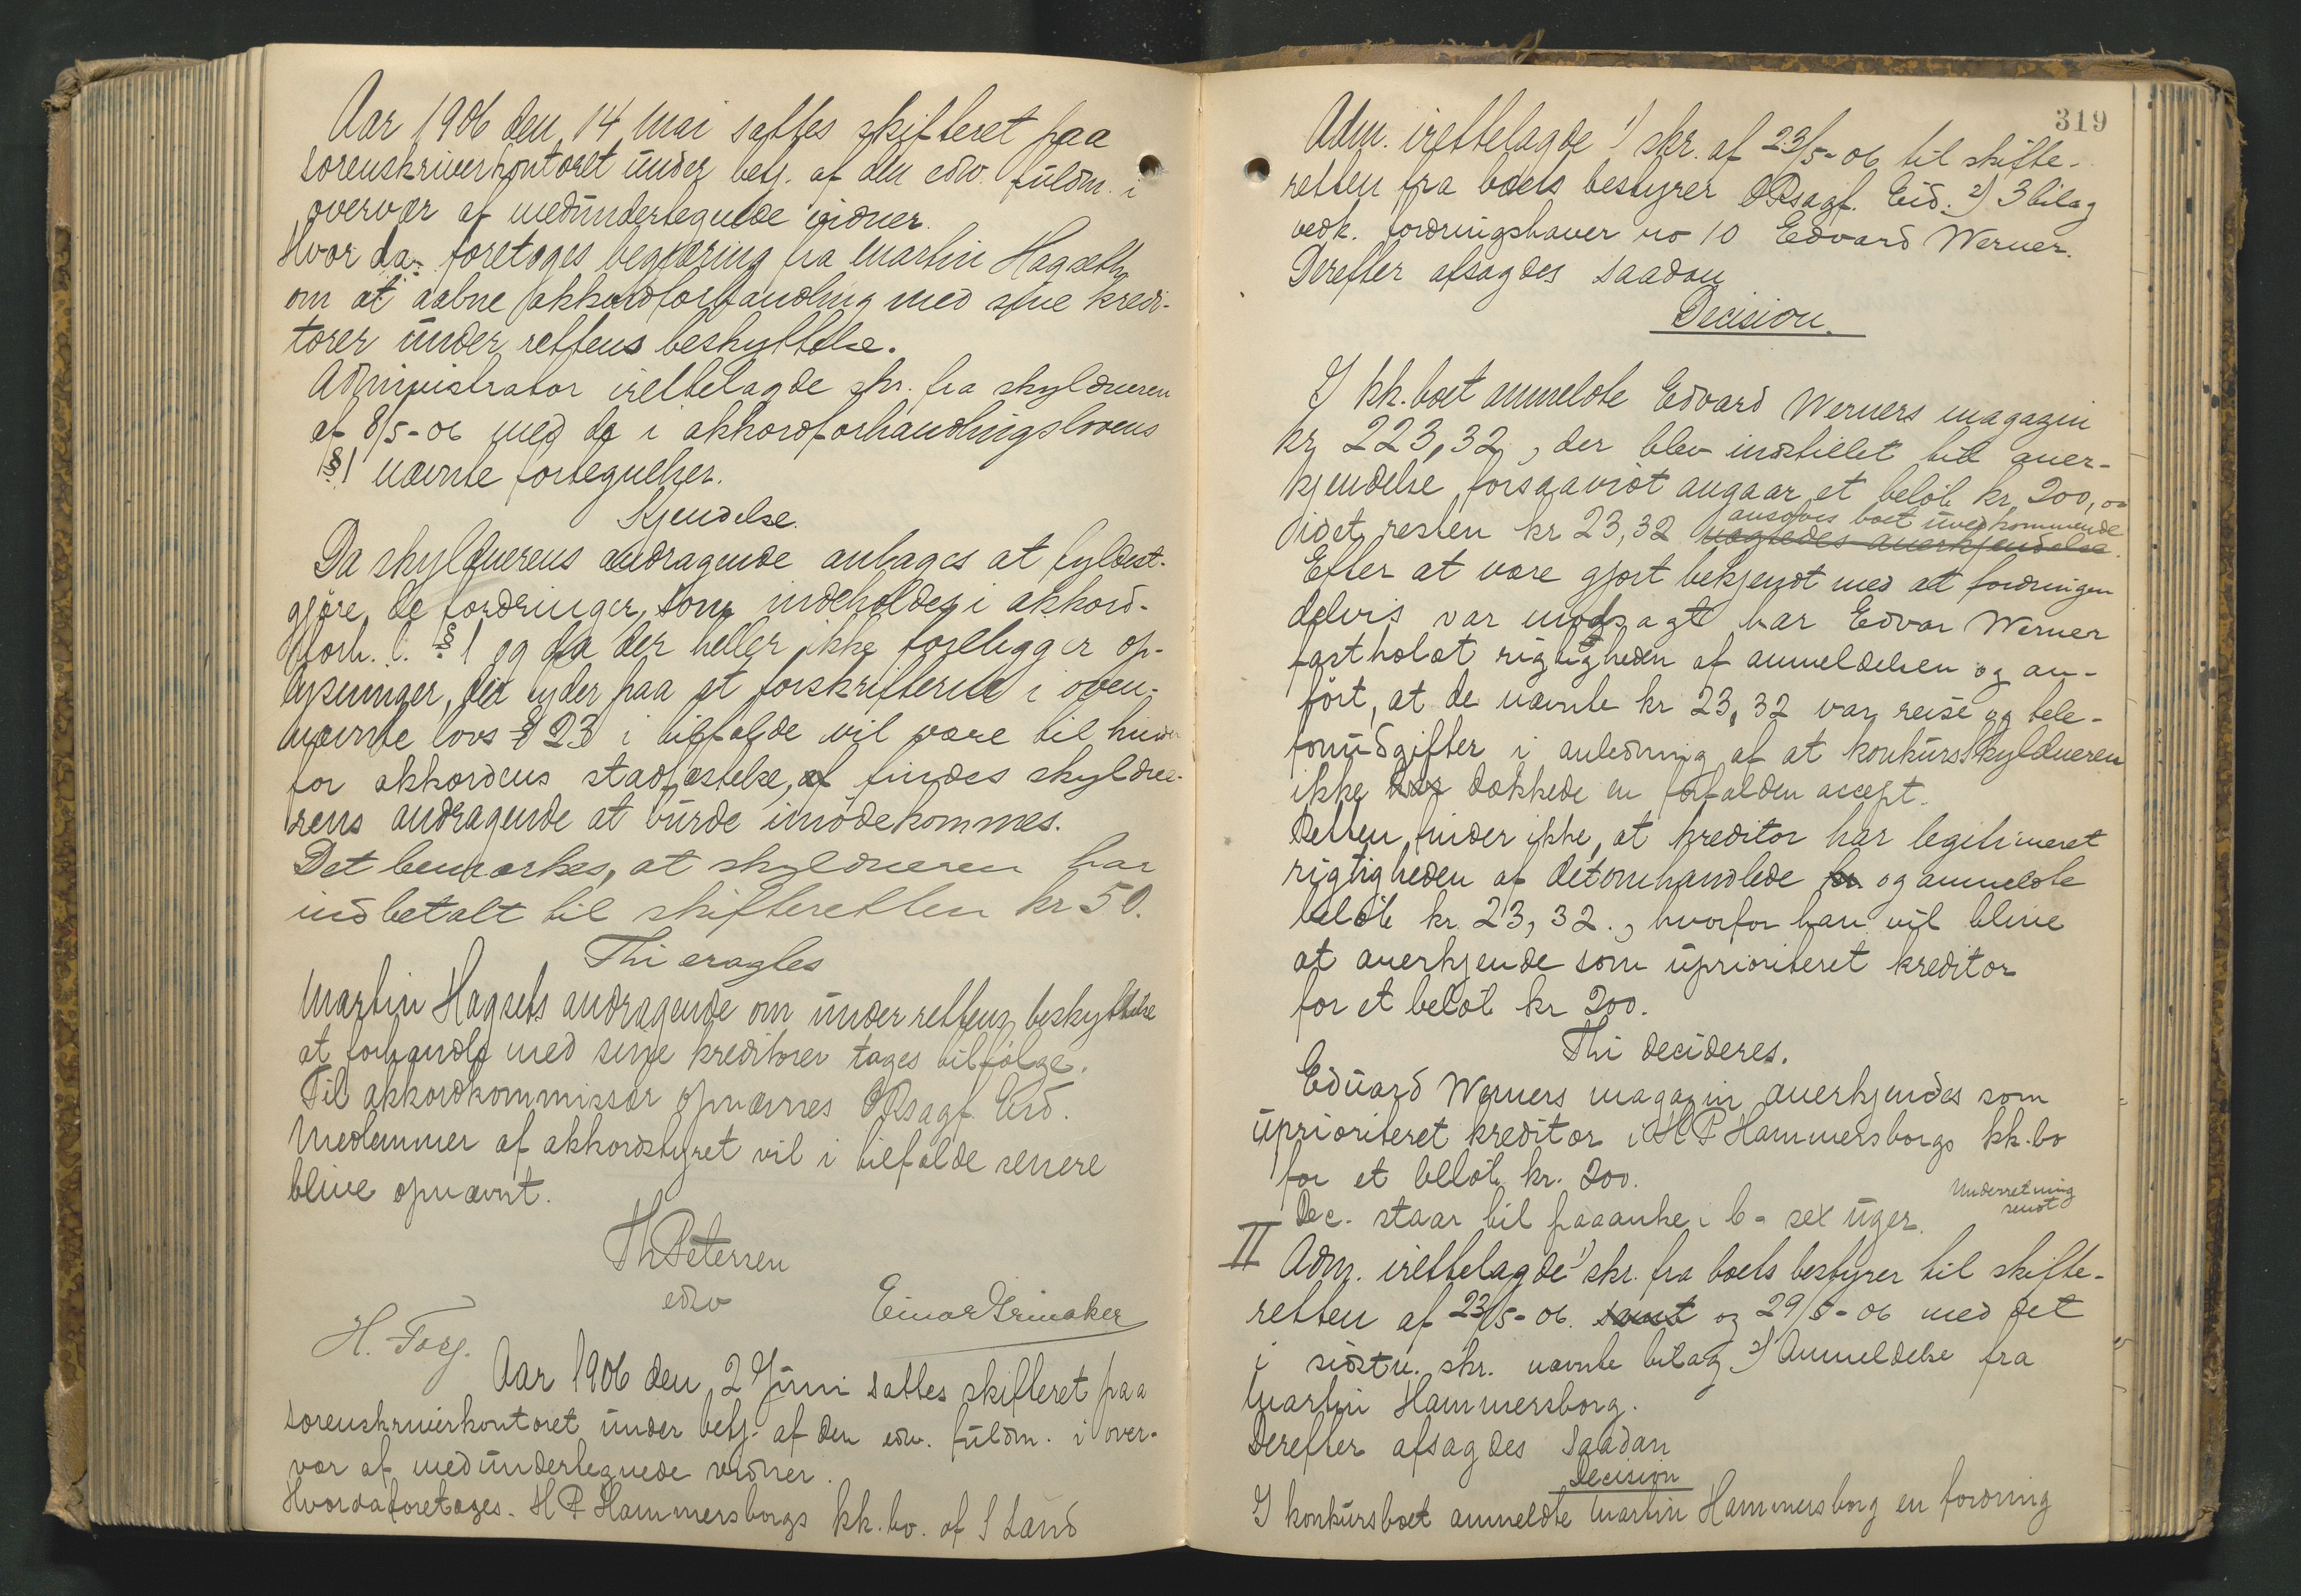 Aar 1906 den 14 Mai sattes skifteret paa
sorenskriverkontoret under betj. af den edsv. fuldm. i
overvær af medundertegnede vidner.
Hvor da foretoges begjæring fra Martin Hagseth
om at aabne akkordforhandling med sine kredi-
torer under rettens beskyttelse.
Administrator irettelagde skr. fra skyldneren
af 8/5-06 med de i akkordforhandlingslovens
§1 nævnte fortegnelser.
Kjendelse.
Da skyldnerens andragende antages at fyldest-
gjøre de fordringer, som indeholdes i akkord-
forh. l. § 1 og da der heller ikke foreligger op-
lysninger, der tyder paa at forskrifterne i oven-
nævnte lovs § 23 i tilfælde vil være til hinder
for akkordens stadfæstelse, findes skyldne-
rens andragende at burde imødekommes.
Det bemærkes, at skyldneren har
indbetalt til skifteretten kr 50.
Thi eragtes
Martin Hagseths andragende om under rettens beskyttelse
at forhandle med sine kreditorer tages tilfølge.
Til akkordkommissær opnævnes ORsagf. Eid.
Medlemmer af akkordstyret vil i tilfælde senere
blive opnævnt.
Th Petersen
edsv
Einar Grinaker
H. Forg.
Aar 1906 den 2 Juni sattes skifteret paa
sorenskriverkontoret under betj. af den edsv. fuldm. i over-
vær af medundertegnede vidner.
Hvor da foretoges. H P Hammersborgs kk. bo. af S Land
319
Adm. irettelagde 1) skr. af 23/5-06 til skifte-
retten fra boets bestyrer ORsagf. Eid. 2) 3 bilag
vedk. fordringshaver no 10 Edvard Werner.
Derefter afsagdes saadan
Decision.
I kk. boet anmeldte Edvard Werners magazin
kr 223,32, der blev indstillet til aner-
kjendelse forsaavidt angaar et beløb kr 200,00
ansaaes boet uvedkommende
idet resten kr 23,32 nægtedes anerkjendelse.
Efter at være gjort bekjendt med at fordringen
delvis var modsagt har Edvar Werner
fastholdt rigtigheden af anmeldelsen og an-
ført, at de nævnte kr 23,32 var reise og tele-
fonudgifter i anledning af at konkursskyldneren
ikke har dækkede en forfalden accept.
Retten finder ikke, at kreditor har legitimeret
rigtigheden af det omhandlede kr og anmeldte
beløb kr 23,32., hvorfor han vil blive
at anerkjende som uprioriteret kreditor
for et beløb kr 200.
Thi decideres.
Eduard Werners magazin anerkjendes som
uprioriteret kreditor i H P Hammersborgs kk. bo
for et beløb kr. 200.
Underretning
sendt
Dec. staar til paaanke i 6 - sex uger.
II Adm. irettelagde 1) skr. fra boets bestyrer til skifte-
retten af 23/5-06. samt og 29/5-06 med det
i sidstn. skr. nævnte bilag 2) Anmeldelse fra
Martin Hammersborg.
Derefter afsagdes saadan
Decision
I konkursboet anmeldte Martin Hammersborg en fordring